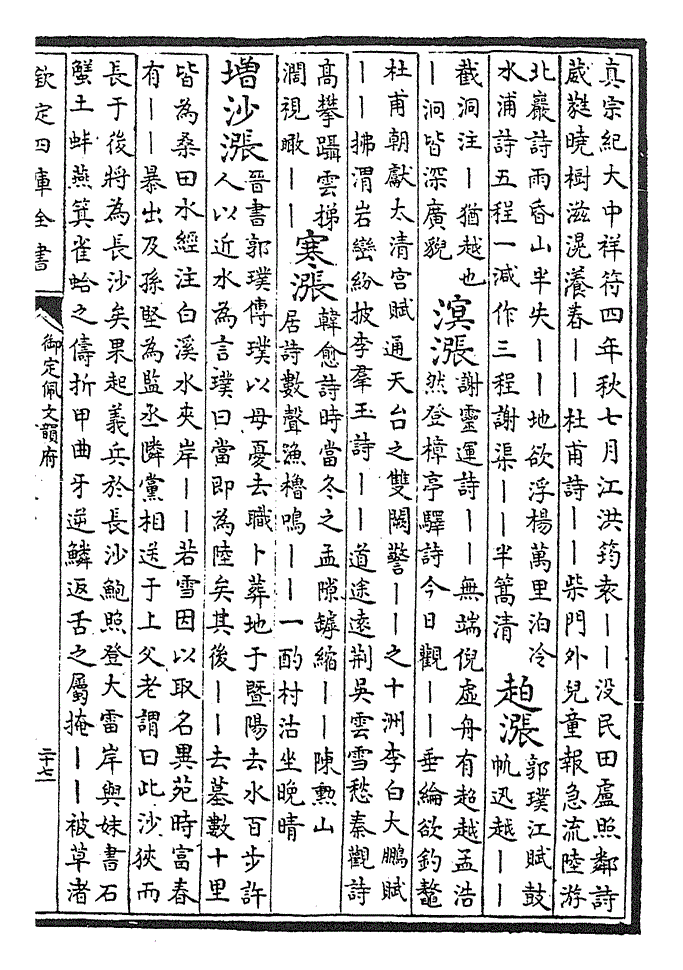 真宗紀大中祥符四年秋七月江洪筠袁——没民田盧照鄰詩
葳蕤曉樹滋滉瀁春——杜甫詩——柴門外兒童報急流陸游
北巖詩雨昏山半失——地欲浮楊萬里泊冷
水浦詩五程一減作三程謝渠——半篙清
趠漲
郭璞江賦鼓
帆迅越——
截洞注—猶越也
—洞皆深廣貌
溟漲
謝靈運詩——無端倪虛舟有超越孟浩
然登樟亭驛詩今日觀——垂綸欲釣鼇
杜甫朝獻太清宮賦通天台之雙闕警——之十洲李白大鵬賦
——拂渭岩巒紛披李羣玉詩——道途遠荆吳雲雪愁秦觀詩
高攀躡雲梯
濶視瞰——
寒漲
韓愈詩時當冬之孟隙罅縮——陳勲山
居詩數聲漁櫓鳴——一酌村沽坐晚晴
增沙漲
晉書郭璞傳璞以母憂去職卜葬地于暨陽去水百步許
人以近水為言璞曰當即為陸矣其後——去墓數十里
皆為桑田水經注白溪水夾岸——若雪因以取名異苑時富春
有——暴出及孫堅為監丞隣黨相送于上父老謂曰此沙狹而
長于後將為長沙矣果起義兵於長沙鮑照登大雷岸與妹書石
蟹土蚌燕箕雀蛤之儔折甲曲牙逆鱗返舌之屬掩——被草渚
欽定四庫全書
御定佩文韻府
二十七